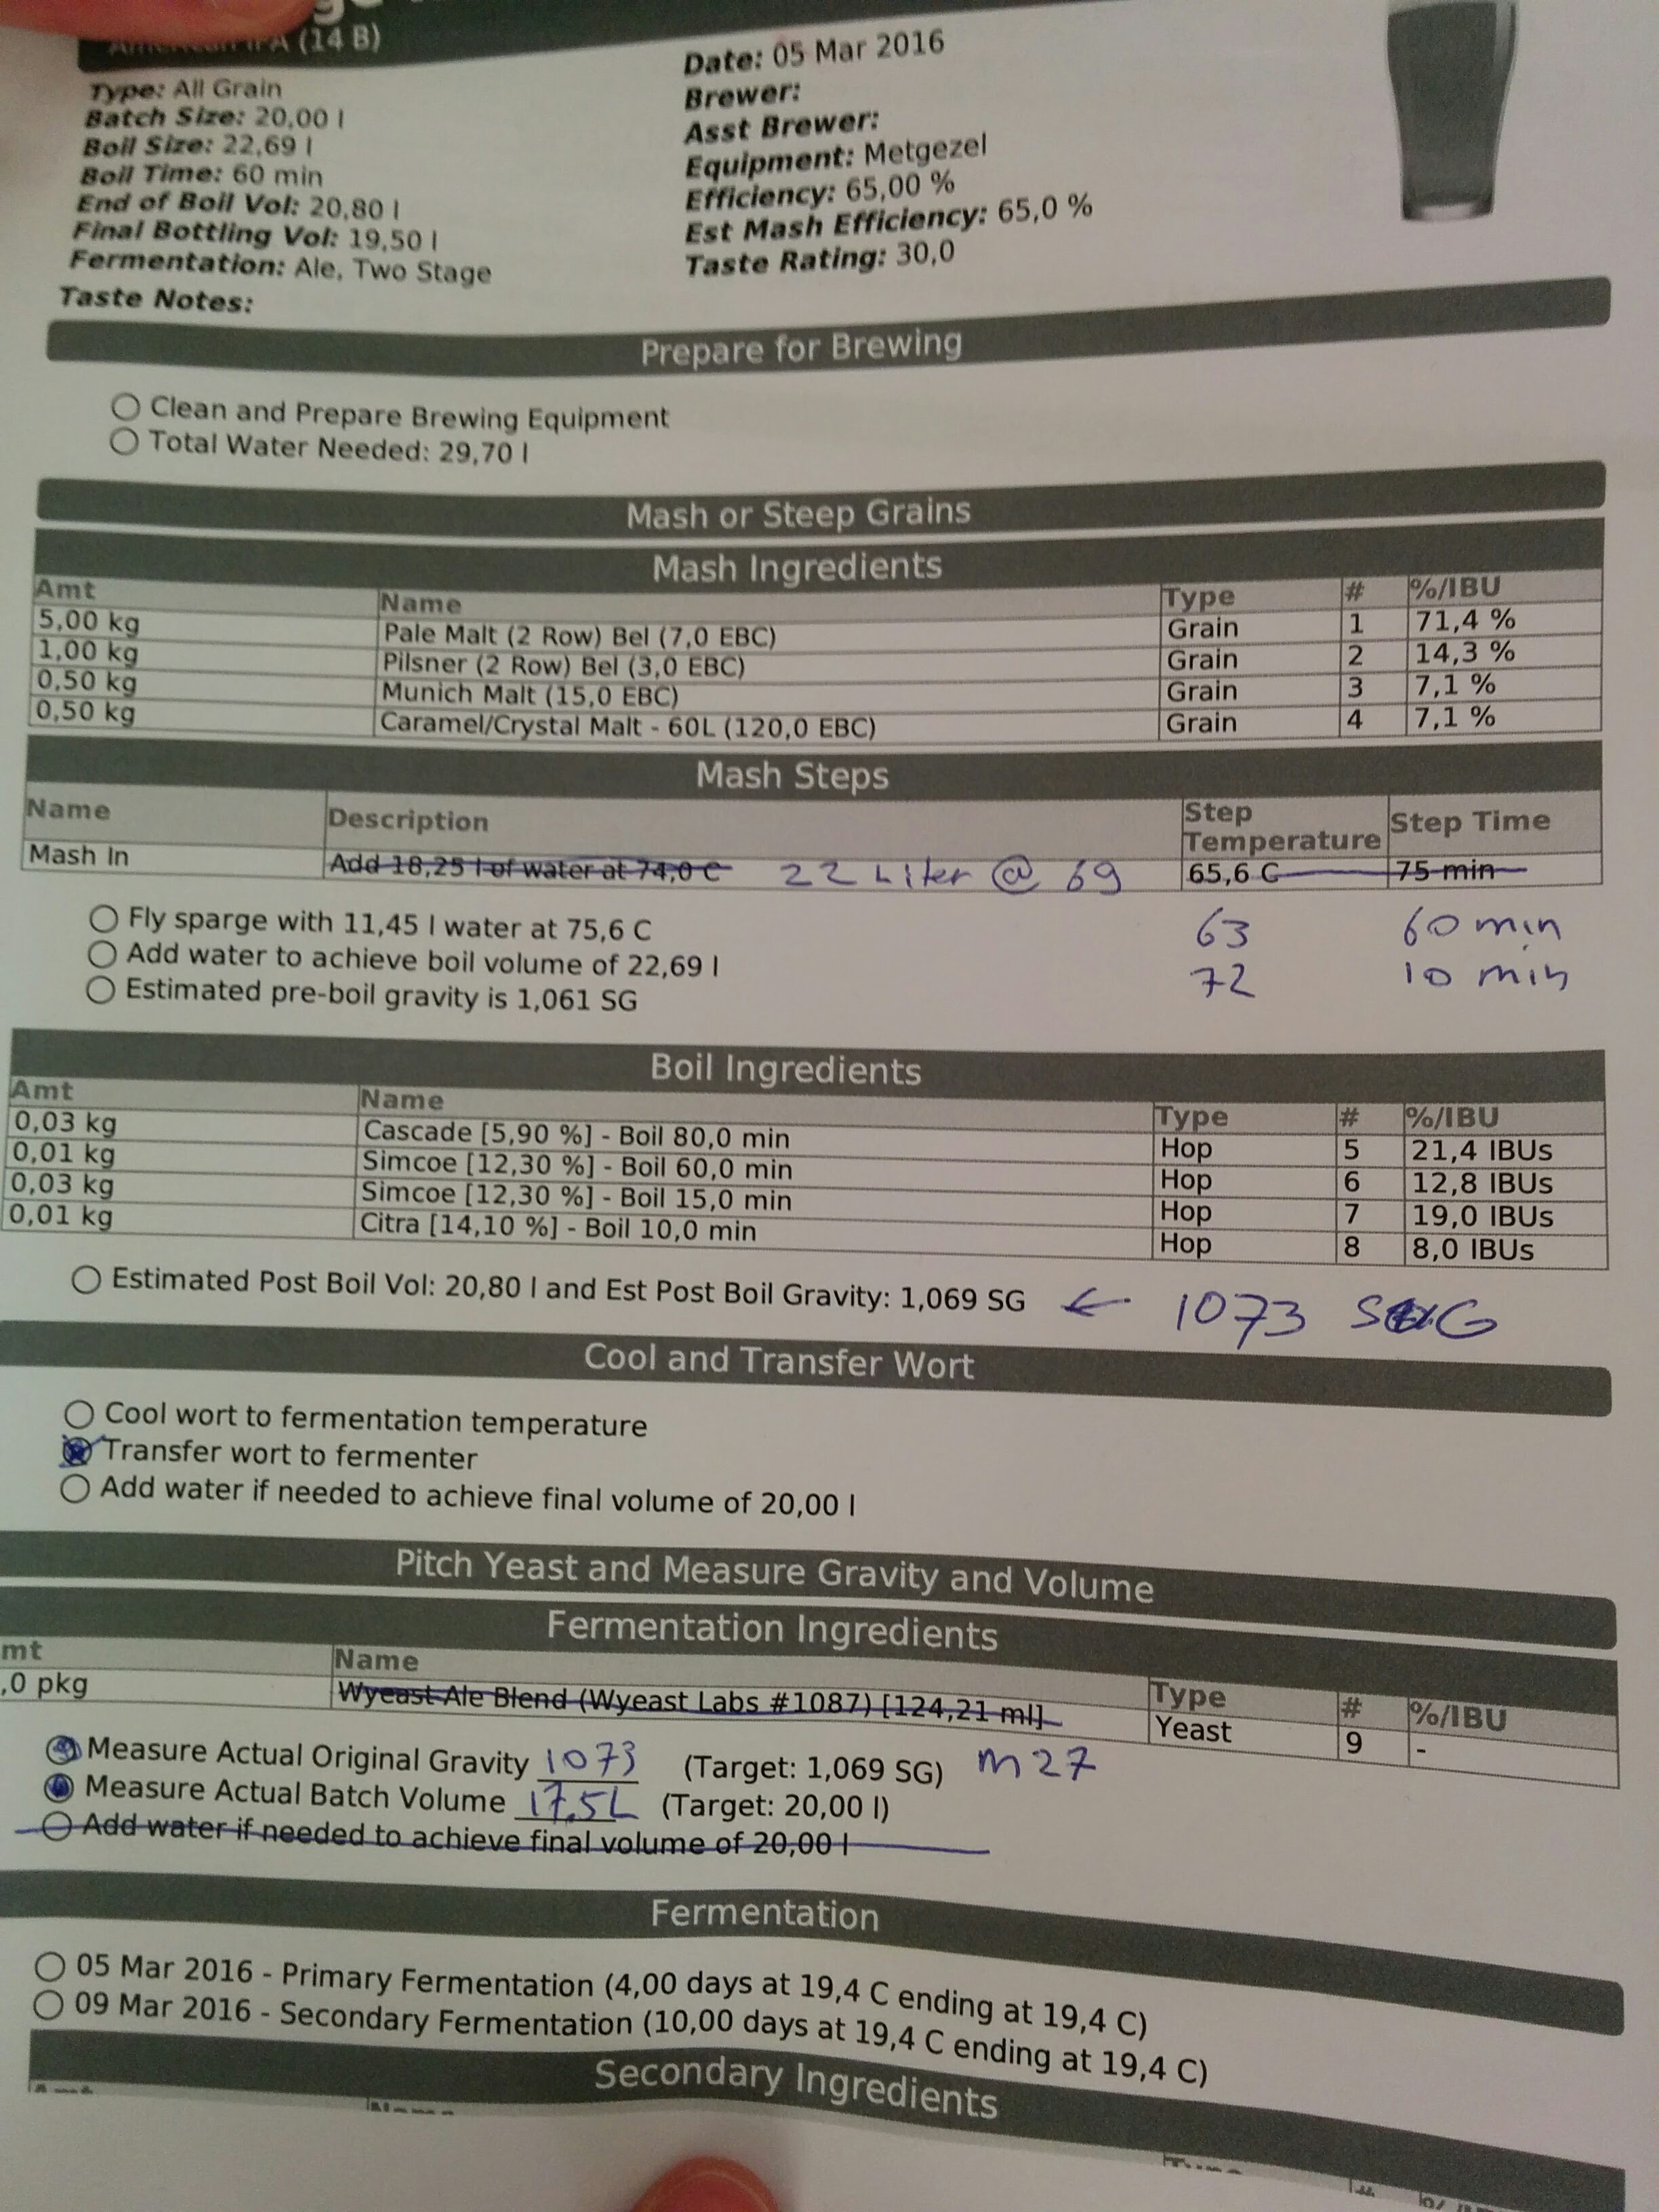 (14 B)
Type: All Grain
Batch Size: 20,00 l
Boil Size: 22,69 l
Boil Time: 60 min
End of Boil Vol: 20,80 l
Final Bottling Vol: 19,50 l
Fermentation: Ale, Two Stage
Taste Notes:
Date: 05 Mar 2016
Brewer:
Asst Brewer:
Equipment: Metgezel
Efficiency: 65,00 %
Est Mash Efficiency: 65,0 %
Taste Rating: 30,0
Prepare for Brewing
Clean and Prepare Brewing Equipment
Total Water Needed: 29,70 l
Mash or Steep Grains
Mash Ingredients
Amt Name Type # %/IBU
5,00 kg Pale Malt (2 Row) Bel (7,0 EBC) Grain 1 71,4 %
1,00 kg Pilsner (2 Row) Bel (3,0 EBC) Grain 2 14,3 %
0,50 kg Munich Malt (15,0 EBC) Grain 3 7,1 %
0,50 kg Caramel/Crystal Malt - 60L (120,0 EBC) Grain 4 7,1 %
Mash Steps
Name Description Step Temperature Step Time
Mash In Add 18,25 l of water at 74,0 C 22 Liter @ 69 65,6 C 75 min
Fly sparge with 11,45 l water at 75,6 C 63 60 min
Add water to achieve boil volume of 22,69 l 72 10 min
Estimated pre-boil gravity is 1,061 SG
Boil Ingredients
Amt Name Type # %/IBU
0,03 kg Cascade [5,90 %] - Boil 80,0 min Hop 5 21,4 IBUs
0,01 kg Simcoe [12,30 %] - Boil 60,0 min Hop 6 12,8 IBUs
0,03 kg Simcoe [12,30 %] - Boil 15,0 min Hop 7 19,0 IBUs
0,01 kg Citra [14,10 %] - Boil 10,0 min Hop 8 8,0 IBUs
Estimated Post Boil Vol: 20,80 l and Est Post Boil Gravity: 1,069 SG ← 1073 SG
Cool and Transfer Wort
Cool wort to fermentation temperature
Transfer wort to fermenter
Add water if needed to achieve final volume of 20,00 l
Pitch Yeast and Measure Gravity and Volume
Fermentation Ingredients
mt Name Type # %/IBU
,0 pkg Wyeast Ale Blend (Wyeast Labs #1087) [124,21 ml] Yeast 9 -
Measure Actual Original Gravity 1073 (Target: 1,069 SG) M27
Measure Actual Batch Volume 17,5L (Target: 20,00 l)
Add water if needed to achieve final volume of 20,00 l
Fermentation
05 Mar 2016 - Primary Fermentation (4,00 days at 19,4 C ending at 19,4 C)
09 Mar 2016 - Secondary Fermentation (10,00 days at 19,4 C ending at 19,4 C)
Secondary Ingredients